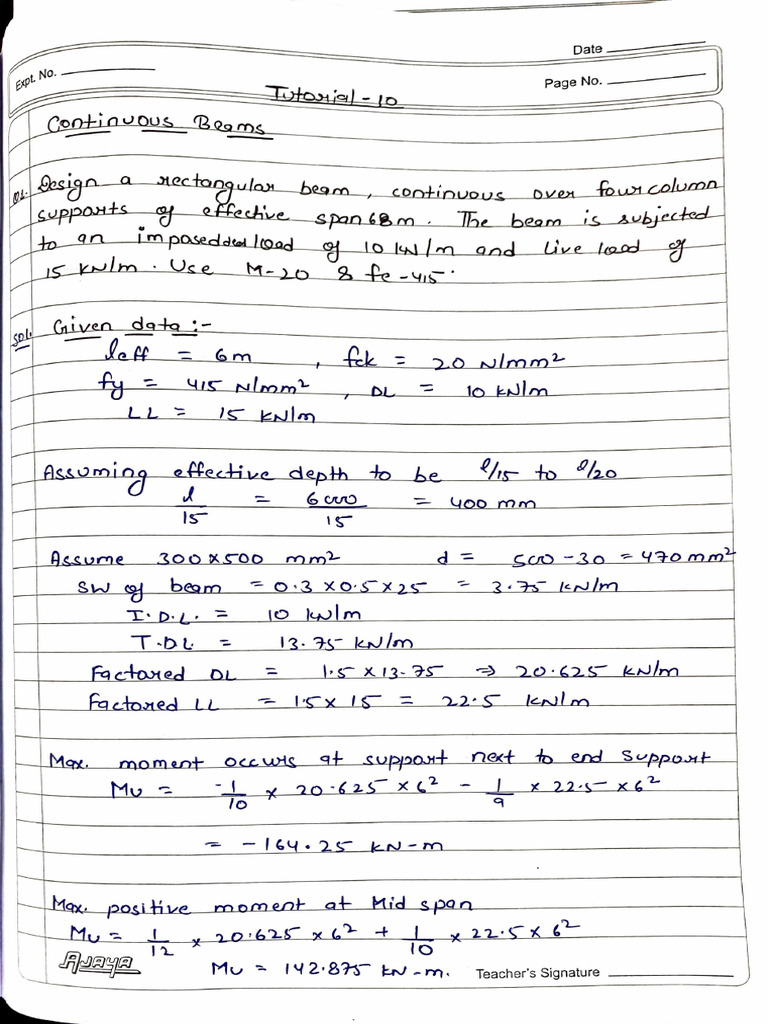 Date
Expt. No.
Page No.
Tutorial-10
Continuous Beams
Q1. Design a rectangular beam, continuous over four column
supports of effective span 6 m. The beam is subjected
to an imposed dead load of 10 kN/m and live load of
15 kN/m. Use M-20 & fe-415.
Sol. Given data :-
leff = 6m , fck = 20 N/mm²
fy = 415 N/mm² , DL = 10 kN/m
LL = 15 kN/m
Assuming effective depth to be l/15 to l/20
l/15 = 6000/15 = 400 mm
Assume 300×500 mm² d = 500-30 = 470 mm²
SW of beam = 0.3 × 0.5 × 25 = 3.75 kN/m
I.D.L. = 10 kN/m
T.DL. = 13.75 kN/m
Factored DL = 1.5 × 13.75 ⇒ 20.625 kN/m
Factored LL = 1.5 × 15 = 22.5 kN/m
Max. moment occurs at support next to end support
Mu = -1/10 × 20.625 × 6² - 1/9 × 22.5 × 6²
= -164.25 kN-m
Max. positive moment at Mid span
Mu = 1/12 × 20.625 × 6² + 1/10 × 22.5 × 6²
Mu = 142.875 kN-m.
AJAYA
Teacher's Signature